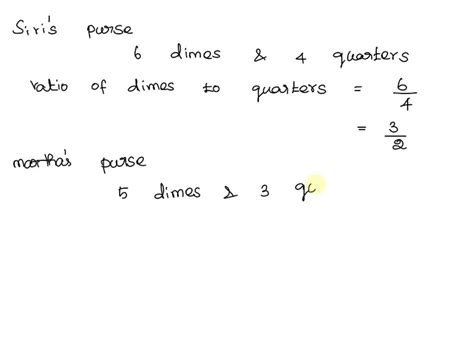 Siri's purse
6 dimes & 4 quarters
ratio of dimes to quarters = 6/4
= 3/2
martha's purse
5 dimes & 3 qu